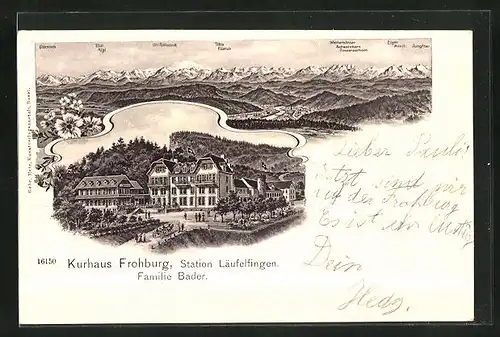 Glärnisch
Tödi
Titlis
Wetterhörner
Schreckhorn
Finsteraarhorn
Eiger
Mönch
Jungfrau
Lieber Pauli
Jetzt sind wir
auf der Frohburg
Es ist sehr lustig
Dein
Hedy
16150
Kurhaus Frohburg, Station Läufelfingen.
Familie Bader.